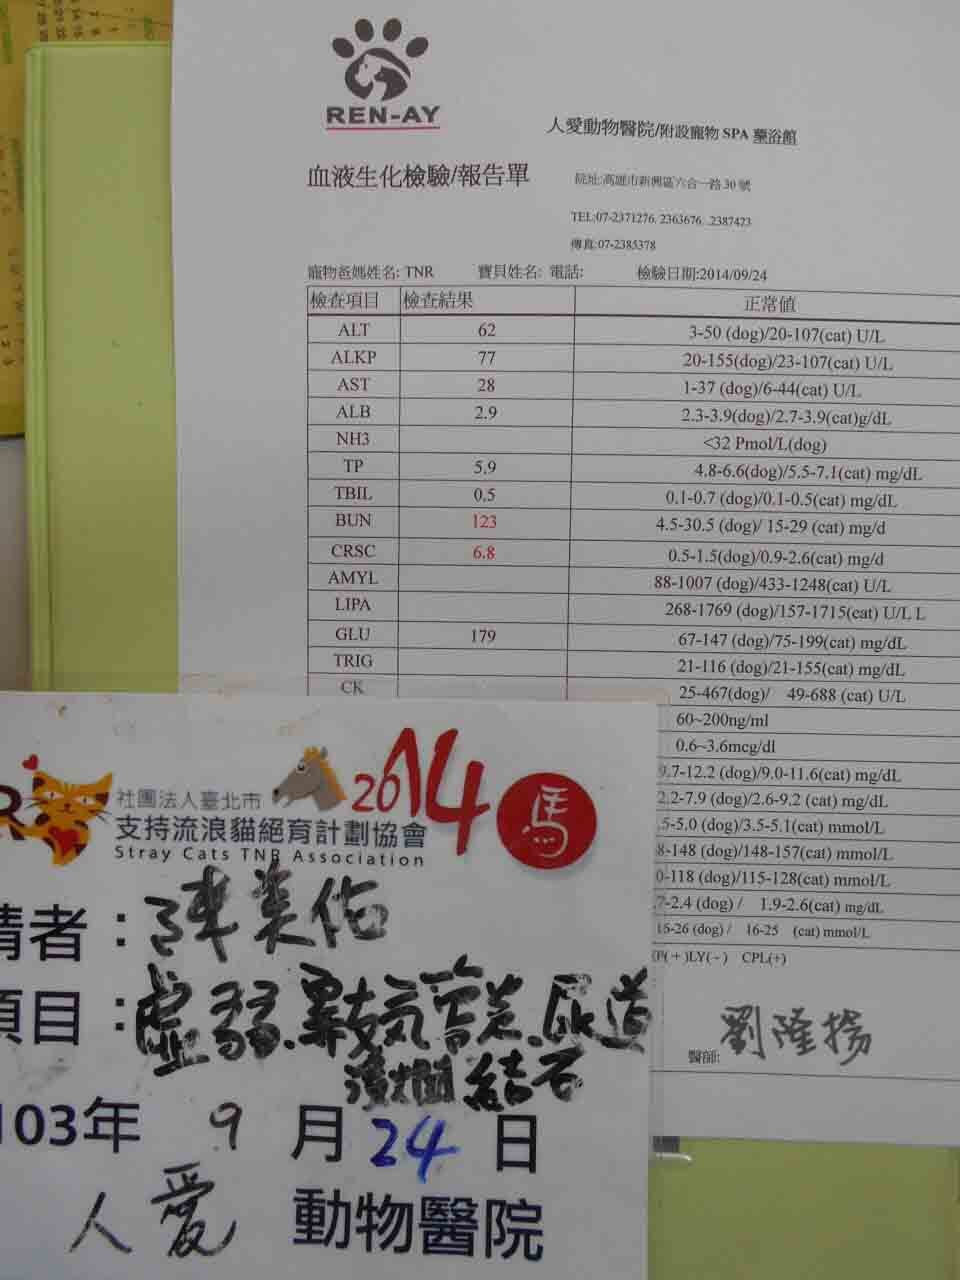 REN-AY
人愛動物醫院/附設寵物 SPA 藥浴館
血液生化檢驗/報告單
院址:高雄市新興區六合一路 30 號
TEL:07-2371276. 2363676. .2387423
傳真:07-2385378
寵物爸媽姓名: TNR 寶貝姓名: 電話: 檢驗日期:2014/09/24
檢查項目 檢查結果 正常值
ALT 62 3-50 (dog)/20-107(cat) U/L
ALKP 77 20-155(dog)/23-107(cat) U/L
AST 28 1-37 (dog)/6-44(cat) U/L
ALB 2.9 2.3-3.9(dog)/2.7-3.9(cat)g/dL
NH3 <32 Pmol/L(dog)
TP 5.9 4.8-6.6(dog)/5.5-7.1(cat) mg/dL
TBIL 0.5 0.1-0.7 (dog)/0.1-0.5(cat) mg/dL
BUN 123 4.5-30.5 (dog)/ 15-29 (cat) mg/d
CRSC 6.8 0.5-1.5(dog)/0.9-2.6(cat) mg/d
AMYL 88-1007 (dog)/433-1248(cat) U/L
LIPA 268-1769 (dog)/157-1715(cat) U/L L
GLU 179 67-147 (dog)/75-199(cat) mg/dL
TRIG 21-116 (dog)/21-155(cat) mg/dL
CK 25-467(dog)/ 49-688 (cat) U/L
60~200ng/ml
0.6~3.6mcg/dl
9.7-12.2 (dog)/9.0-11.6(cat) mg/dL
2.2-7.9 (dog)/2.6-9.2 (cat) mg/dL
.5-5.0 (dog)/3.5-5.1(cat) mmol/L
8-148 (dog)/148-157(cat) mmol/L
0-118 (dog)/115-128(cat) mmol/L
7-2.4 (dog) / 1.9-2.6(cat) mg/dL
15-26 (dog) / 16-25 (cat) mmol/L
P(+)LY(-) CPL(+)
醫師: 劉隆揚
R
社團法人臺北市
支持流浪貓絕育計劃協會
Stray Cats TNR Association
2014
馬
請者：陳美佑
項目：虛弱、黏氣管炎、尿道
潰爛 結石
103年 9 月 24 日
人愛 動物醫院